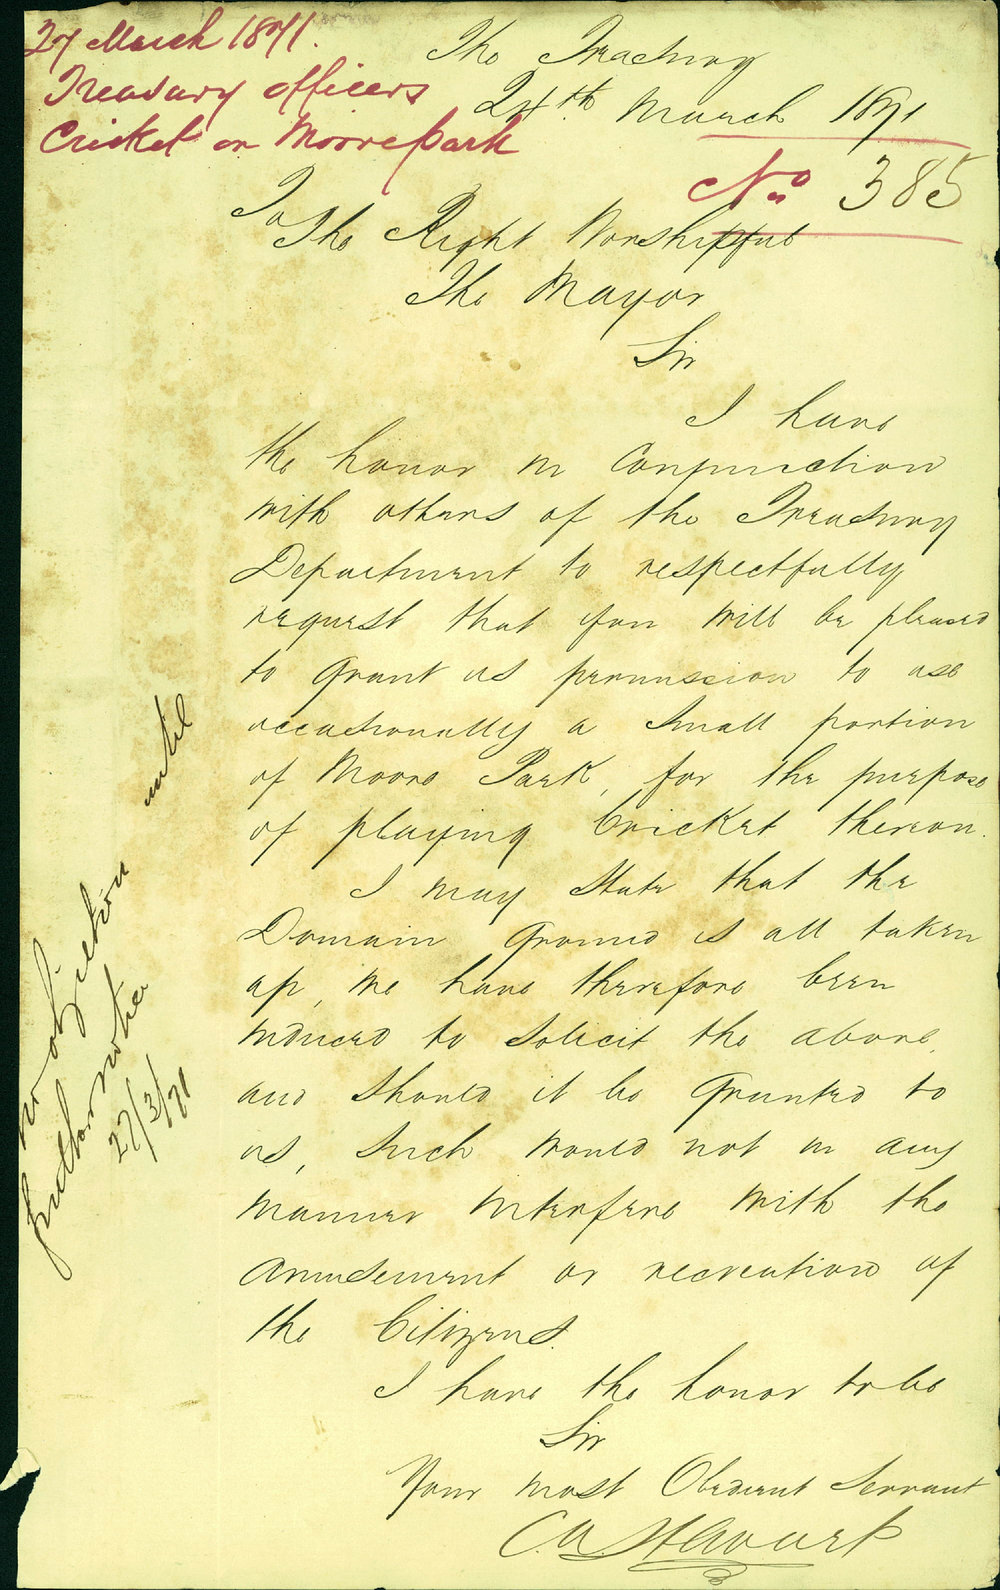 27 March 1871.
Treasury officers
Cricket on Moore Park
The Treasury
24th. March 1871
No 385
To The Right Worshipful
The Mayor
Sir
I have
the honor in Conjunction
with others of the Treasury
Department to respectfully
request that you will be pleased
to grant us permission to use
occasionally a small portion
of Moore Park, for the purpose
of playing Cricket thereon.
I may state that the
Domain Ground is all taken
up, we have therefore been
induced to solicit the above,
and should it be granted to
us, such would not in any
manner interfere with the
amusement or recreation of
the Citizens.
I have the honor to be
Sir
Your most Obedient Servant
No objection until
further notice
27/3/71